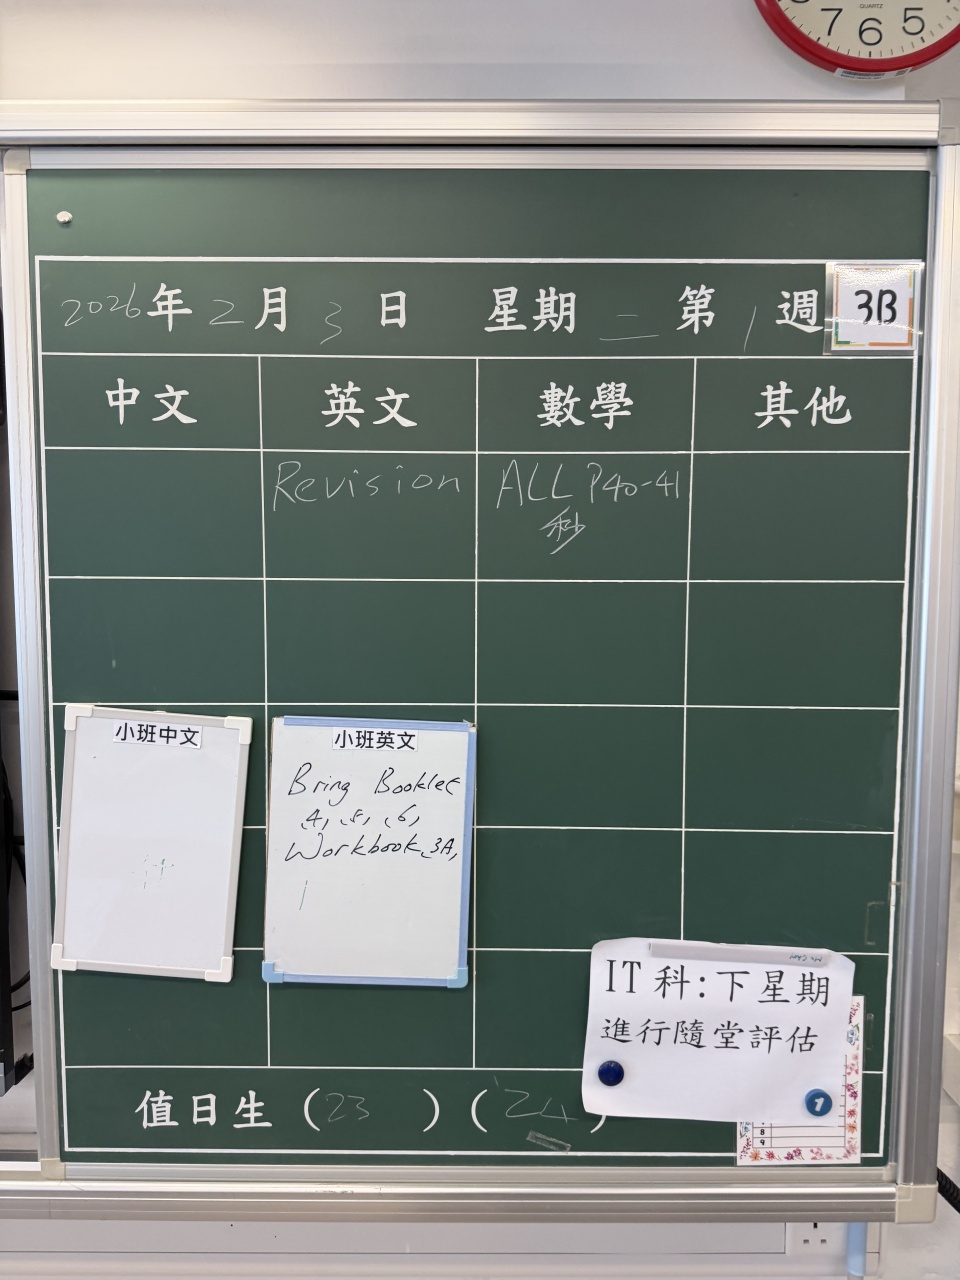 QUARTZ
7 6 5
2026年2月3日 星期二 第1週 3B
中文 英文 數學 其他
Revision
ALL P40-41
秒
小班中文
小班英文
Bring Booklet
4, 5, 6,
Workbook 3A,
IT科:下星期
進行隨堂評估
1
8
9
值日生(23)(24)